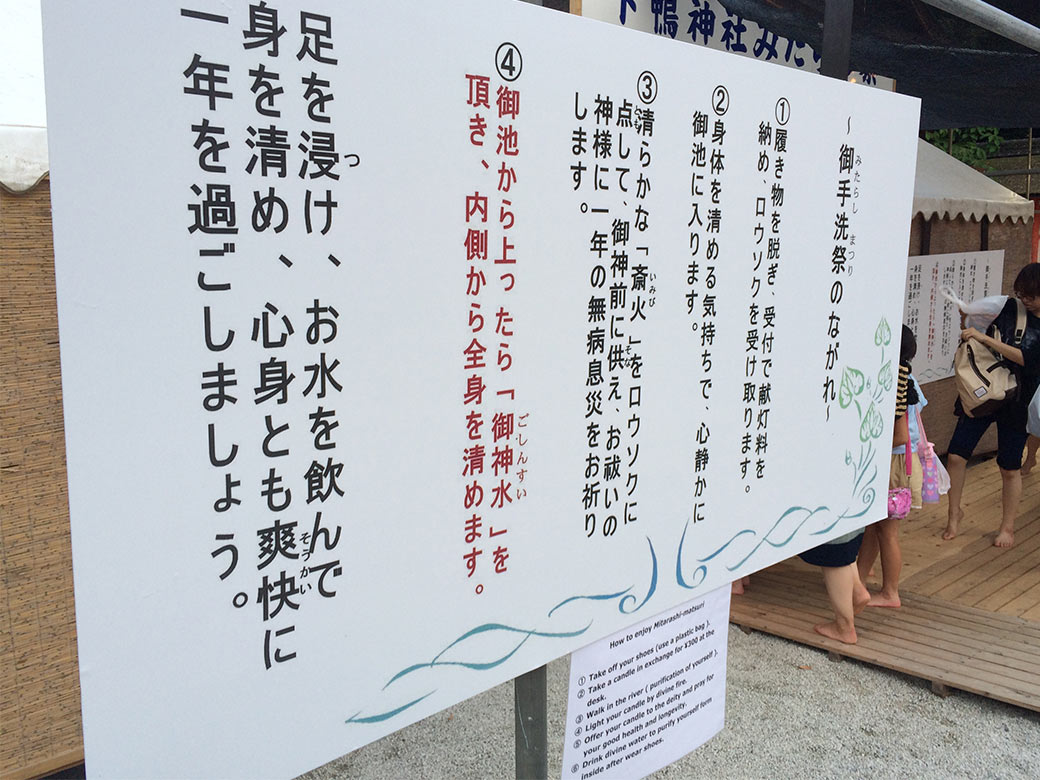 下鴨神社みたらし祭
～御手洗祭のながれ～
みたらし まつり
①履き物を脱ぎ、受付で献灯料を
納め、ロウソクを受け取ります。
②身体を清める気持ちで、心静かに
御池に入ります。
③清らかな「斎火」をロウソクに
いみび
点して、御神前に供え、お祓いの
とも
そな
神様に一年の無病息災をお祈り
します。
④御池から上ったら「御神水」を
ごしんすい
頂き、内側から全身を清めます。
足を浸け、お水を飲んで
つ
身を清め、心身とも爽快に
そうかい
一年を過ごしましょう。
How to enjoy Mitarashi-matsuri
① Take off your shoes (use a plastic bag ).
② Take a candle in exchange for ¥300 at the
desk.
③ Walk in the river ( purification of yourself ).
④ Light your candle by divine fire.
⑤ Offer your candle to the deity and pray for
your good health and longevity.
⑥ Drink divine water to purify yourself form
inside after wear shoes.